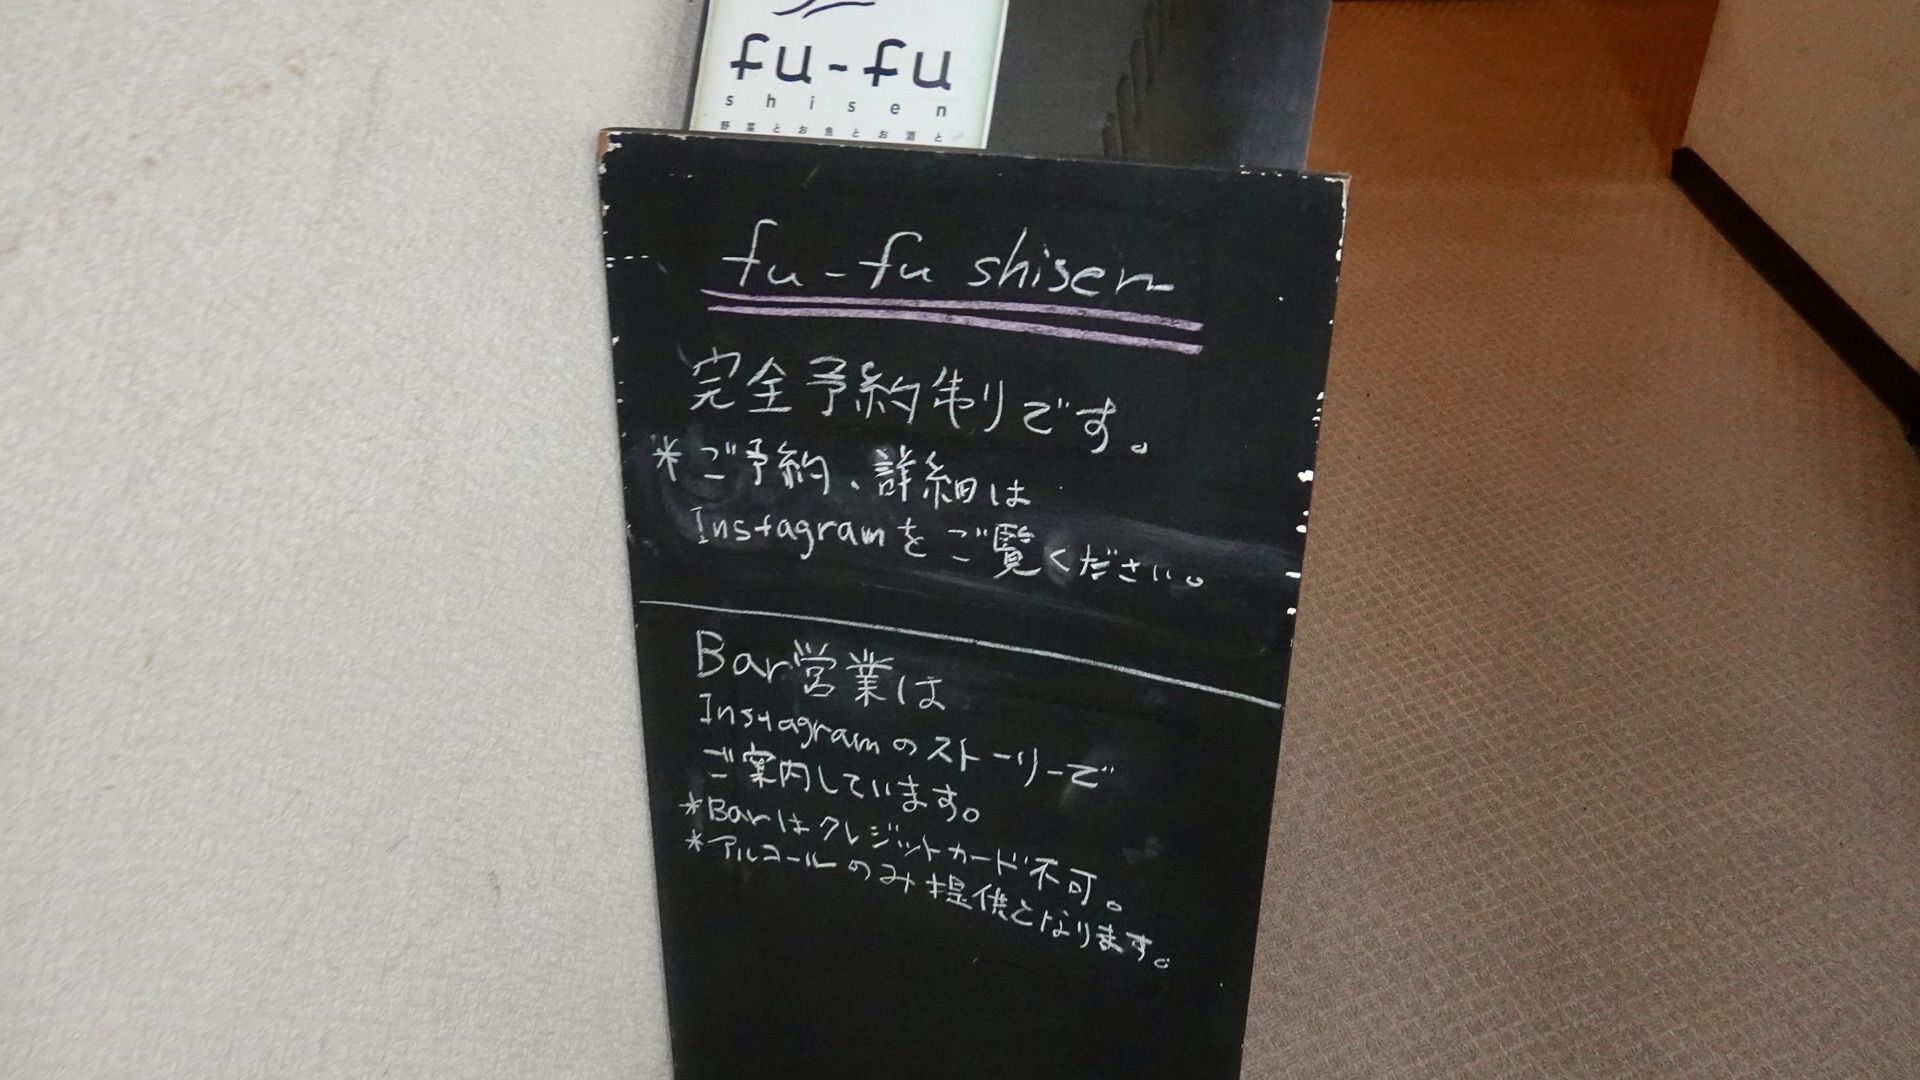 fu-fu
shisen
野菜とお魚とお酒と
fu-fu shisen
完全予約制です。
*ご予約、詳細は
Instagramをご覧ください。
Bar営業は
Instagramのストーリーで
ご案内しています。
*Barはクレジットカード不可。
*アルコールのみ提供となります。